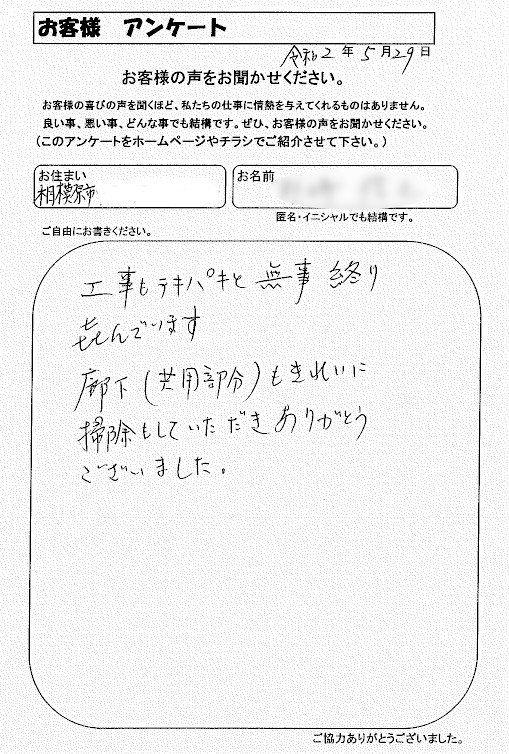 お客様 アンケート
令和2年5月29日
お客様の声をお聞かせください。
お客様の喜びの声を聞くほど、私たちの仕事に情熱を与えてくれるものはありません。
良い事、悪い事、どんな事でも結構です。ぜひ、お客様の声をお聞かせください。
(このアンケートをホームページやチラシでご紹介させて下さい。)
お住まい
相模原市
お名前
匿名・イニシャルでも結構です。
ご自由にお書きください。
工事もテキパキと無事終り
㐂んでいます
廊下(共用部分)もきれいに
掃除もしていただきありがとう
ございました。
ご協力ありがとうございました。